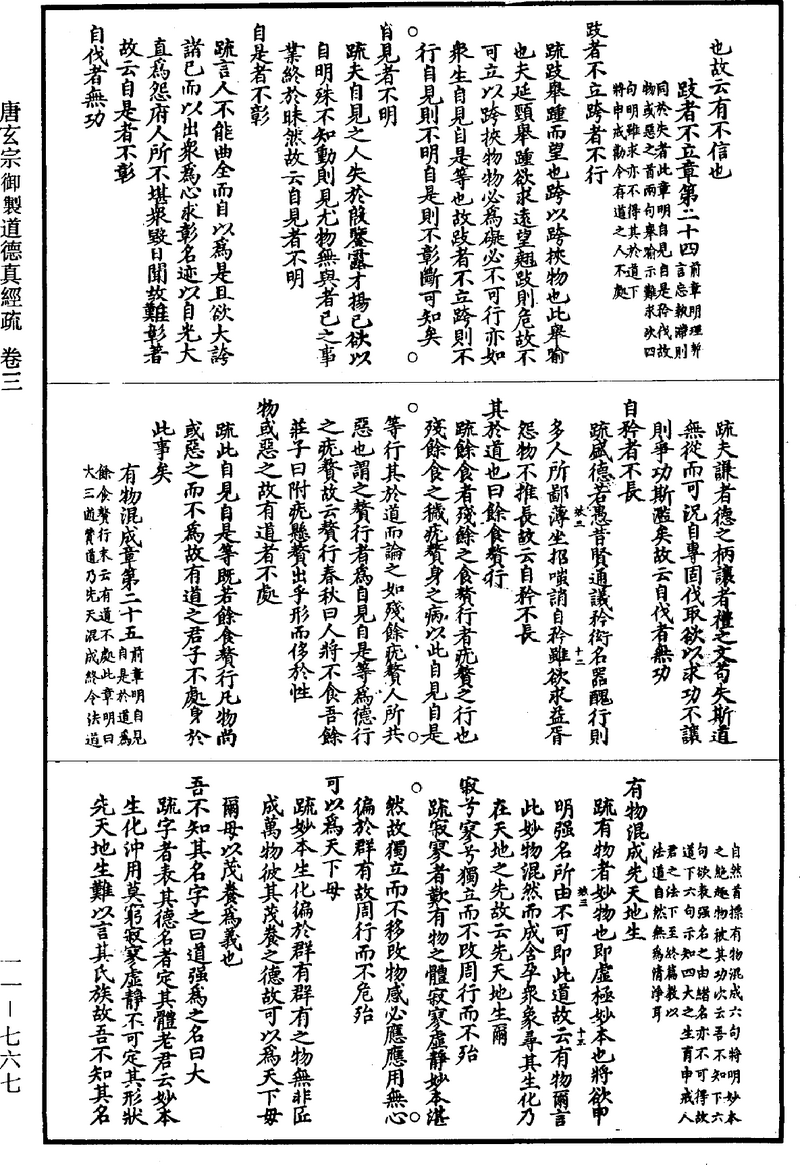 也故云有不信也
跂者不立章第二十四
前章明理新
言忘執滯則
同於失者此章明自見自是矜伐故
物或惡之首兩句舉喻示難求次四
句明雖求亦不得其於道下
將申戒勸令有道之人不處
跂者不立跨者不行
疏跂舉踵而望也跨以跨挾物也此舉喻
也夫延頸舉踵欲求遠望翹跂則危故不
可立以跨挾物物必為礙必不可行亦如
衆生自見自是等也故跂者不立跨則不
行自見則不明自是則不彰斷可知矣
自見者不明
疏夫自見之人失於鑒露才揚已欲以
自明殊不知動則見尤物無與者已之事
業終於昧然故云自見者不明
自是者不彰
疏言人不能曲全而自以為是且欲大誇
諸已而以出衆為心求彰名迹以自光大
直為怨府人所不堪衆毀日聞故難彰著
故云自是者不彰
自伐者無功
疏夫謙者德之柄讓者禮之文苟失斯道
無從而可況自專固伐取欲以求功不讓
則爭功斯濫矣故云自伐者無功
自矜者不長
疏盛德若愚昔賢通議矜衒名器醜行則
多人所鄙薄坐招嗤誚自矜雖欲求益胥
怨物不推長故云自矜不長
其於道也曰餘食贅行
疏餘食者殘餘之食贅行者疣贅之行也
殘餘食之穢疣贅身之病以此自見自是
等行其於道而論之如殘餘疣贅人所共
惡也謂之贅行者為自見自是等為德行
之疣贅故云贅行春秋曰人將不食吾餘
莊子曰附疣懸贅出乎形而侈於性
物或惡之故有道者不處
疏此自見自是等既若餘食贅行凡物尚
或惡之而不為故有道之君子不處身於
此事矣
有物混成章第二十五
前章明自見
自是於道為
餘食贅行末云有道不處此章明曰
大三逝贊道乃先天混成終令法道
自然首標有物混成六句將明妙本
之絕趣物被其功次云吾不知下六
句欲表强名之由緒名亦不可得故
道下六句示知四大之生育申戒人
君之法下至於篇教以
法道自然無為清淨耳
有物混成先天地生
疏有物者妙物也即虛極妙本也將欲申
明强名所由不可即此道故云有物爾言
此妙物混然而成含孕衆象尋其生化乃
在天地之先故云先天地生爾
寂兮寥兮獨立而不改周行而不殆
疏寂寥者歎有物之體寂寥虛靜妙本湛
然故獨立而不移改物感必應應用無心
徧於群有故周行而不危殆
可以為天下母
疏妙本生化徧於群有群有之物無非匠
成萬物彼其茂養之德故可以為天下母
爾母以茂養為義也
吾不知其名字之曰道强為之名曰大
疏字者表其德名者定其體老君云妙本
生化沖用莫窮寂寥虛靜不可定其形狀
先天地生難以言其氏族故吾不知其名
唐玄宗御製道德真經疏 卷三
一一－七六七